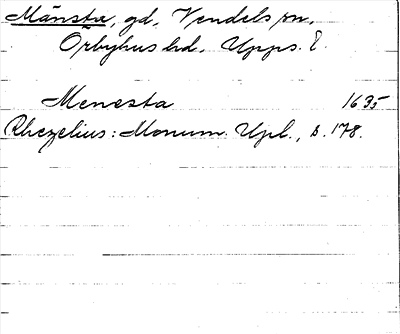 Mänsta, gd, Vendels sn,
Örbyhus hd, Upps. l.
Menesta 1635
Rhezelius: Monum. Upl., s. 178.